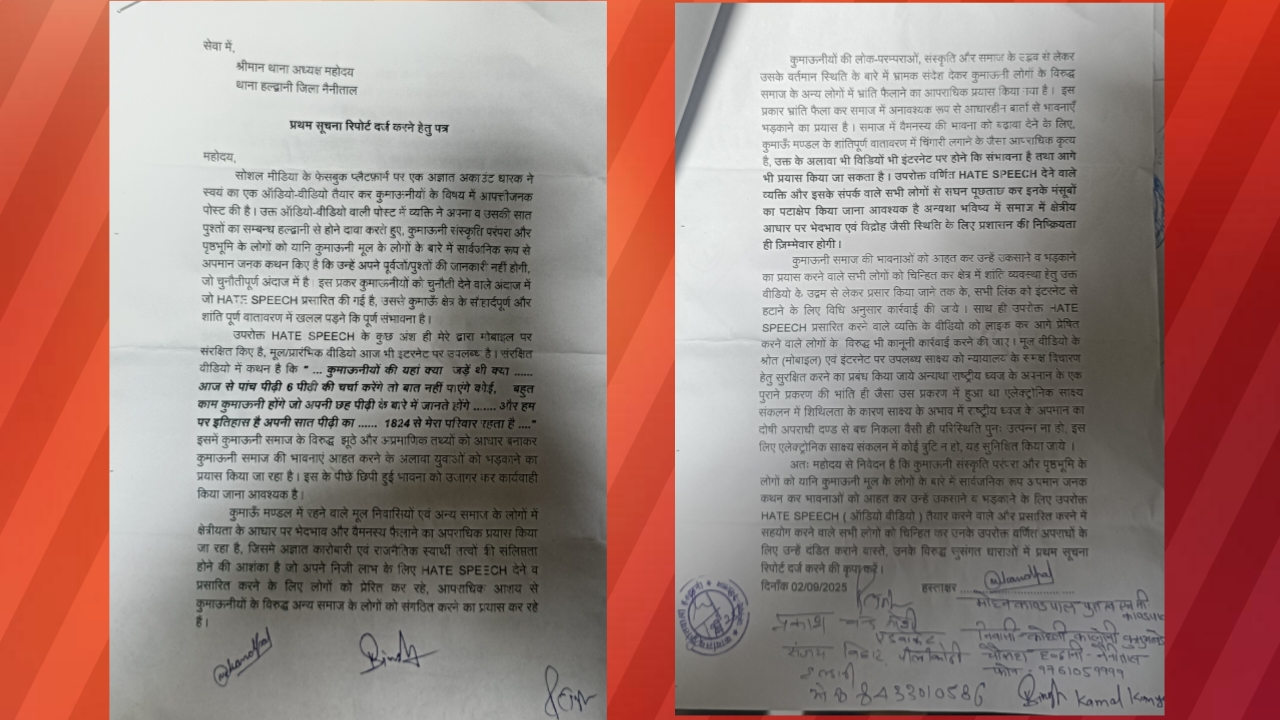 सेवा में,
श्रीमान थाना अध्यक्ष महोदय
थाना हल्द्वानी जिला नैनीताल
प्रथम सूचना रिपोर्ट दर्ज करने हेतु पत्र
महोदय,
सोशल मीडिया के फेसबुक प्लैटफ़ार्म पर एक अज्ञात अकाउंट धारक ने
स्वयं का एक ऑडियो-वीडियो तैयार कर कुमाऊनीयों के विषय में आपत्तीजनक
पोस्ट की है। उक्त ऑडियो-वीडियो वाली पोस्ट में व्यक्ति ने अपना व उसकी सात
पुश्तों का सम्बन्ध हल्द्वानी से होने दावा करते हुए, कुमाऊनी संस्कृति परंपरा और
पृष्ठभूमि के लोगों को यानि कुमाऊनी मूल के लोगों के बारे में सार्वजनिक रूप से
अपमान जनक कथन किए है कि उन्हें अपने पूर्वजों/पुश्तों की जानकारी नहीं होगी,
जो चुनौतीपूर्ण अंदाज में है। इस प्रकर कुमाऊनीयों को चुनौती देने वाले अंदाज में
जो HATE SPEECH प्रसारित की गई है, उससे कुमाऊँ क्षेत्र के सौहार्दपूर्ण और
शांति पूर्ण वातावरण में खलल पड़ने कि पूर्ण संभावना है।
उपरोक्त HATE SPEECH के कुछ अंश ही मेरे द्वारा मोबाइल पर
संरक्षित किए है, मूल/प्रारंभिक वीडियो आज भी इंटरनेट पर उपलब्ध है। संरक्षित
वीडियो में कथन है कि " ... कुमाऊनीयों की यहां क्या जड़ें थी क्या ......
आज से पांच पीढ़ी 6 पीढी की चर्चा करेंगे तो बात नहीं पाएंगे कोई, बहुत
काम कुमाऊनी होंगे जो अपनी छह पीढ़ी के बारे में जानते होंगे ....... और हम
पर इतिहास है अपनी सात पीढ़ी का ...... 1824 से मेरा परिवार रहता है ...."
इसमें कुमाऊनी समाज के विरुद्ध झूठे और अप्रमाणिक तथ्यों को आधार बनाकर
कुमाऊनी समाज की भावनाएं आहत करने के अलावा युवाओं को भड़काने का
प्रयास किया जा रहा है। इस के पीछे छिपी हुई भावना को उजागर कर कार्यवाही
किया जाना आवश्यक है।
कुमाऊँ मण्डल में रहने वाले मूल निवासियों एवं अन्य समाज के लोगों में
क्षेत्रीयता के आधार पर भेदभाव और वैमनस्य फैलाने का अपराधिक प्रयास किया
जा रहा है, जिसमे अज्ञात कारोबारी एवं राजनैतिक स्वार्थी तत्वों की संलिप्तता
होने की आशंका है जो अपने निजी लाभ के लिए HATE SPEECH देने व
प्रसारित करने के लिए लोगों को प्रेरित कर रहे, आपराधिक आशय से
कुमाऊनीयों के विरुद्ध अन्य समाज के लोगों को संगठित करने का प्रयास कर रहे
हैं।
Bindh
कुमाऊनीयों की लोक-परम्पराओं, संस्कृति और समाज के उद्भव से लेकर
उसके वर्तमान स्थिति के बारे में भ्रामक संदेश देकर कुमाऊनी लोगों के विरुद्ध
समाज के अन्य लोगों में भ्रांति फैलाने का आपराधिक प्रयास किया गया है। इस
प्रकार भ्रांति फैला कर समाज में अनावश्यक रूप से आधारहीन बार्ता से भावनाएँ
भड़काने का प्रयास है। समाज में वैमनस्य की भावना को बढ़ावा देने के लिए,
कुमाऊँ मण्डल के शांतिपूर्ण वातावरण में चिंगारी लगाने के जैसा आपराधिक कृत्य
है, उक्त के अलावा भी विडियों भी इंटरनेट पर होने कि संभावना है तथा आगे
भी प्रयास किया जा सकता है। उपरोक्त वर्णित HATE SPEECH देने वाले
व्यक्ति और इसके संपर्क वाले सभी लोगों से सघन पूछताछ कर इनके मंसूबों
का पटाक्षेप किया जाना आवश्यक है अन्यथा भविष्य में समाज में क्षेत्रीय
आधार पर भेदभाव एवं विद्रोह जैसी स्थिति के लिए प्रशासन की निष्क्रियता
ही ज़िम्मेवार होगी।
कुमाऊनी समाज की भावनाओं को आहत कर उन्हें उकसाने व भड़काने
का प्रयास करने वाले सभी लोगों को चिन्हित कर क्षेत्र में शांति व्यवस्था हेतु उक्त
वीडियो के उद्गम से लेकर प्रसार किया जाने तक के, सभी लिंक को इंटरनेट से
हटाने के लिए विधि अनुसार कार्रवाई की जाये। साथ ही उपरोक्त HATE
SPEECH प्रसारित करने वाले व्यक्ति के वीडियो को लाइक कर आगे प्रेषित
करने वाले लोगों के विरुद्ध भी कानूनी कार्रवाई करने की जाए। मूल वीडियो के
श्रोत (मोबाइल) एवं इंटरनेट पर उपलब्ध साक्ष्य को न्यायालय के समक्ष विचारण
हेतु सुरक्षित करने का प्रबंध किया जाये अन्यथा राष्ट्रीय ध्वज के अपमान के एक
पुराने प्रकरण की भांति ही जैसा उस प्रकरण में हुआ था एलेक्ट्रोनिक साक्ष्य
संकलन में शिथिलता के कारण साक्ष्य के अभाव में राष्ट्रीय ध्वज के अपमान का
दोषी अपराधी दण्ड से बच निकला वैसी ही परिस्थिति पुनः उत्पन्न ना हो, इस
लिए एलेक्ट्रोनिक साक्ष्य संकलन में कोई त्रुटि न हो, यह सुनिश्चित किया जाये ।
अतः महोदय से निवेदन है कि कुमाऊनी संस्कृति परंपरा और पृष्ठभूमि के
लोगों को यानि कुमाऊनी मूल के लोगों के बारे में सार्वजनिक रूप अपमान जनक
कथन कर भावनाओं को आहत कर उन्हें उकसाने व भड़काने के लिए उपरोक्त
HATE SPEECH ( ऑडियो वीडियो ) तैयार करने वाले और प्रसारित करने में
सहयोग करने वाले सभी लोगों को चिन्हित कर उनके उपरोक्त वर्णित अपराधों के
लिए उन्हें दंडित कराने वास्ते, उनके विरुद्ध सुसंगत धाराओं में प्रथम सूचना
रिपोर्ट दर्ज करने की कृपा करें।
दिनाँक 02/09/2025 हस्ताक्षर
प्रकाश चन्द्र जोशी
एडवोकेट
संजय विहार, पीलीकोठी
हल्द्वानी
मो० 8433010586
मोहन काण्डपाल पुत्र स्व श्री
निवासी
हल्द्वानी - नैनीताल
फोन - 9761059999
Bindh Kamal